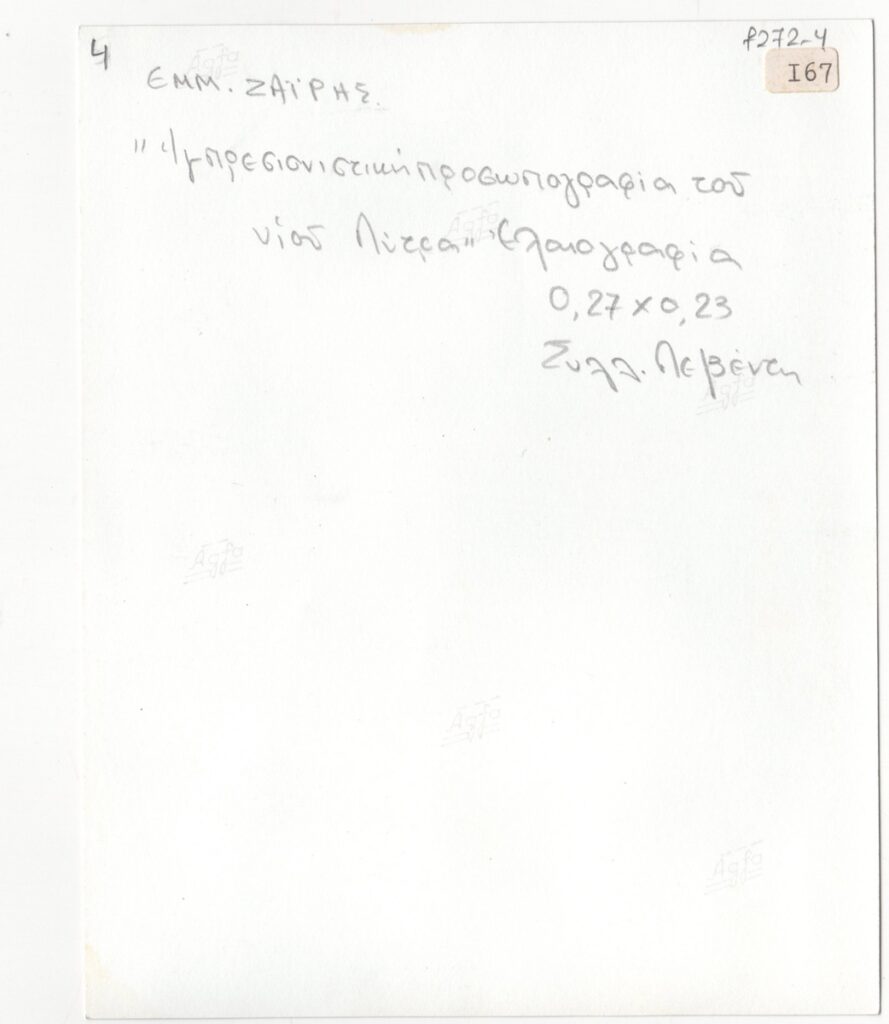 4
f272-4
I67
ΕΜΜ. ΖΑΪΡΗΣ.
"Ἰμπρεσιονιστική προσωπογραφία τοῦ
υἱοῦ Λύτρα" Ἐλαιογραφία
0,27 x 0,23
Συλλ. Λεβέντη
Agfa
Agfa
Agfa
Agfa
Agfa
Agfa